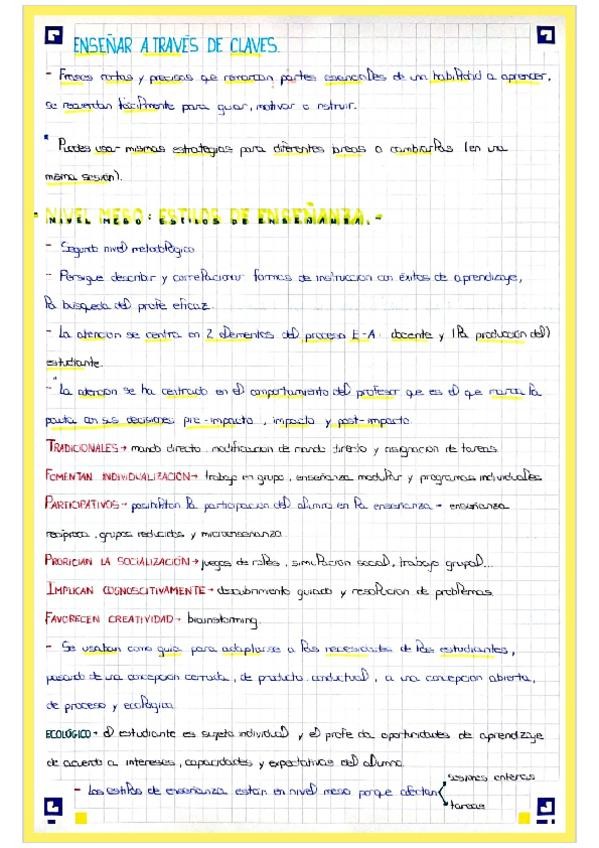 ENSEÑAR A TRAVÉS DE CLAVES.
- Frases cortas y precisas que remarcan partes esenciales de una habilidad a aprender,
se recuerdan fácilmente para guiar, motivar o instruir.
* Puedes usar mismas estrategias para diferentes tareas o cambiarlas (en una
misma sesión).
- NIVEL MESO: ESTILOS DE ENSEÑANZA. -
- Segundo nivel metodológico
- Persigue describir y correlacionar formas de instrucción con éxitos de aprendizaje,
la búsqueda del profe eficaz.
- La atención se centra en 2 elementos del proceso E-A: docente y (la producción del)
estudiante.
- "La atención se ha centrado en el comportamiento del profesor que es el que marca la
pauta con sus decisiones pre-impacto, impacto y post-impacto
TRADICIONALES → mando directo, modificación de mando directo y asignación de tareas.
FOMENTAN INDIVIDUALIZACIÓN → trabajo en grupo, enseñanza modular y programas individuales
PARTICIPATIVOS → posibilitan la participación del alumno en la enseñanza - enseñanza
recíproca, grupos reducidos y microenseñanza.
PROPICIAN LA SOCIALIZACIÓN → juegos de roles, simulación social, trabajo grupal...
IMPLICAN COGNOSCITIVAMENTE → descubrimiento guiado y resolución de problemas.
FAVORECEN CREATIVIDAD → brainstorming.
- Se usaban como guía para adaptarse a las necesidades de los estudiantes,
pasando de una concepción cerrada, de producto, conductual, a una concepción abierta,
de proceso y ecológica
ECOLÓGICO → el estudiante es sujeto individual y el profe da oportunidades de aprendizaje
de acuerdo a intereses, capacidades y expectativas del alumno.
- Los estilos de enseñanza están en nivel meso porque afectan
sesiones enteras
tareas